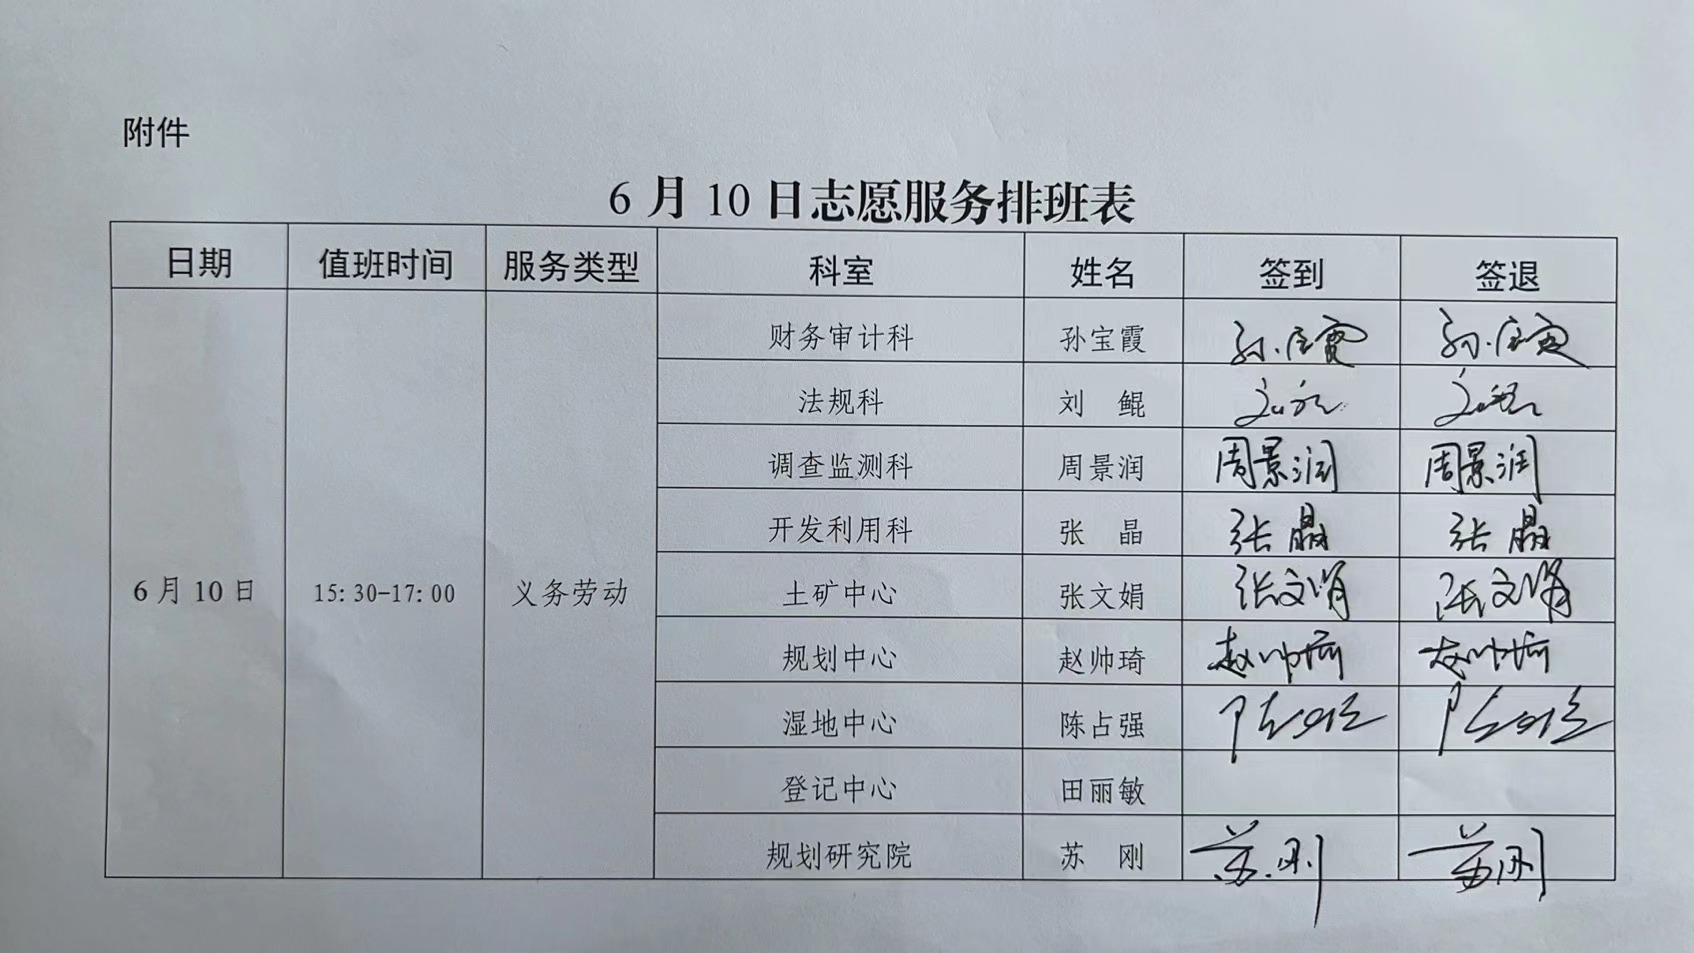 附件
6月10日志愿服务排班表
日期 值班时间 服务类型 科室 姓名 签到 签退
财务审计科 孙宝霞 孙宝霞 孙宝霞
法规科 刘 鲲 刘鲲 刘鲲
调查监测科 周景润 周景润 周景润
开发利用科 张 晶 张晶 张晶
6月10日 15:30-17:00 义务劳动 土矿中心 张文娟 张文娟 张文娟
规划中心 赵帅琦 赵帅琦 赵帅琦
湿地中心 陈占强 陈占强 陈占强
登记中心 田丽敏
规划研究院 苏 刚 苏刚 苏刚